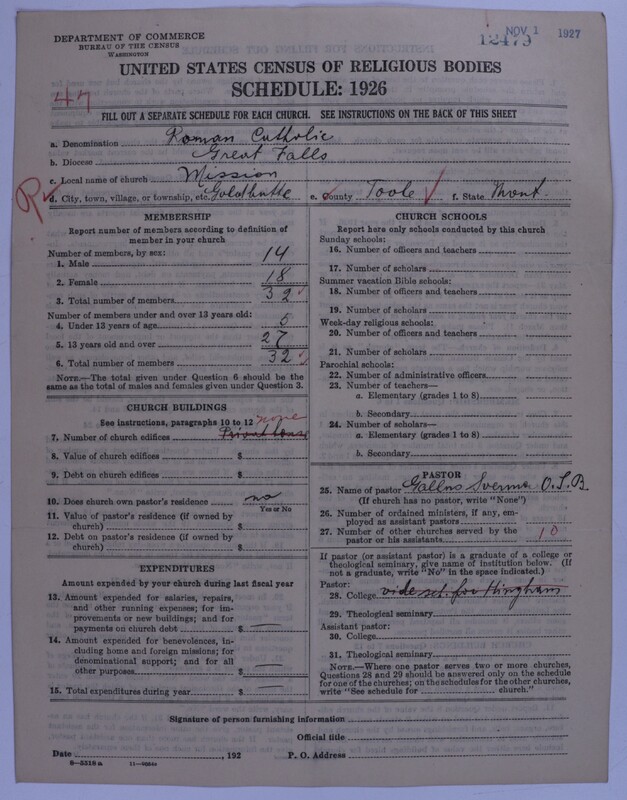 DEPARTMENT OF COMMERCE
BUREAU OF THE CENSUS
WASHINGTON
NOV 1 1927
12479
UNITED STATES CENSUS OF RELIGIOUS BODIES
SCHEDULE: 1926
47
FILL OUT A SEPARATE SCHEDULE FOR EACH CHURCH. SEE INSTRUCTIONS ON THE BACK OF THIS SHEET
a. Denomination Roman Catholic
b. Diocese Great Falls
c. Local name of church Mission
R
d. City, town, village, or township, etc. Goldbutte e. County Toole f. State Mont.
MEMBERSHIP
Report number of members according to definition of
member in your church
Number of members, by sex:
1. Male 14
2. Female 18
3. Total number of members 32
Number of members under and over 13 years old:
4. Under 13 years of age 5
5. 13 years old and over 27
6. Total number of members 32
NOTE.—The total given under Question 6 should be the
same as the total of males and females given under Question 3.
CHURCH BUILDINGS
See instructions, paragraphs 10 to 12 none
7. Number of church edifices Privat house
8. Value of church edifices $
9. Debt on church edifices $
10. Does church own pastor's residence no
Yes or No
11. Value of pastor's residence (if owned by
church) $
12. Debt on pastor's residence (if owned by
church) $
EXPENDITURES
Amount expended by your church during last fiscal year
13. Amount expended for salaries, repairs,
and other running expenses; for im-
provements or new buildings; and for
payments on church debt $ —
14. Amount expended for benevolences, in-
cluding home and foreign missions; for
denominational support; and for all
other purposes $ —
15. Total expenditures during year $ —
CHURCH SCHOOLS
Report here only schools conducted by this church
Sunday schools:
16. Number of officers and teachers
17. Number of scholars
Summer vacation Bible schools:
18. Number of officers and teachers
19. Number of scholars
Week-day religious schools:
20. Number of officers and teachers
21. Number of scholars
Parochial schools:
22. Number of administrative officers
23. Number of teachers—
a. Elementary (grades 1 to 8)
b. Secondary
24. Number of scholars—
a. Elementary (grades 1 to 8)
b. Secondary
PASTOR
25. Name of pastor Gallus O.S.B.
(If church has no pastor, write "None")
26. Number of ordained ministers, if any, em-
ployed as assistant pastors
27. Number of other churches served by the
pastor or his assistants 10
If pastor (or assistant pastor) is a graduate of a college or
theological seminary, give name of institution below. (If
not a graduate, write "No" in the space indicated.)
Pastor:
28. College vide sch. for Hingham
29. Theological seminary
Assistant pastor:
30. College
31. Theological seminary
NOTE.—Where one pastor serves two or more churches,
Questions 28 and 29 should be answered only on the schedule
for one of the churches; on the schedules for the other churches,
write "See schedule for church."
Signature of person furnishing information
Official title
Date , 192 P. O. Address
8—5518 a 11—9954a